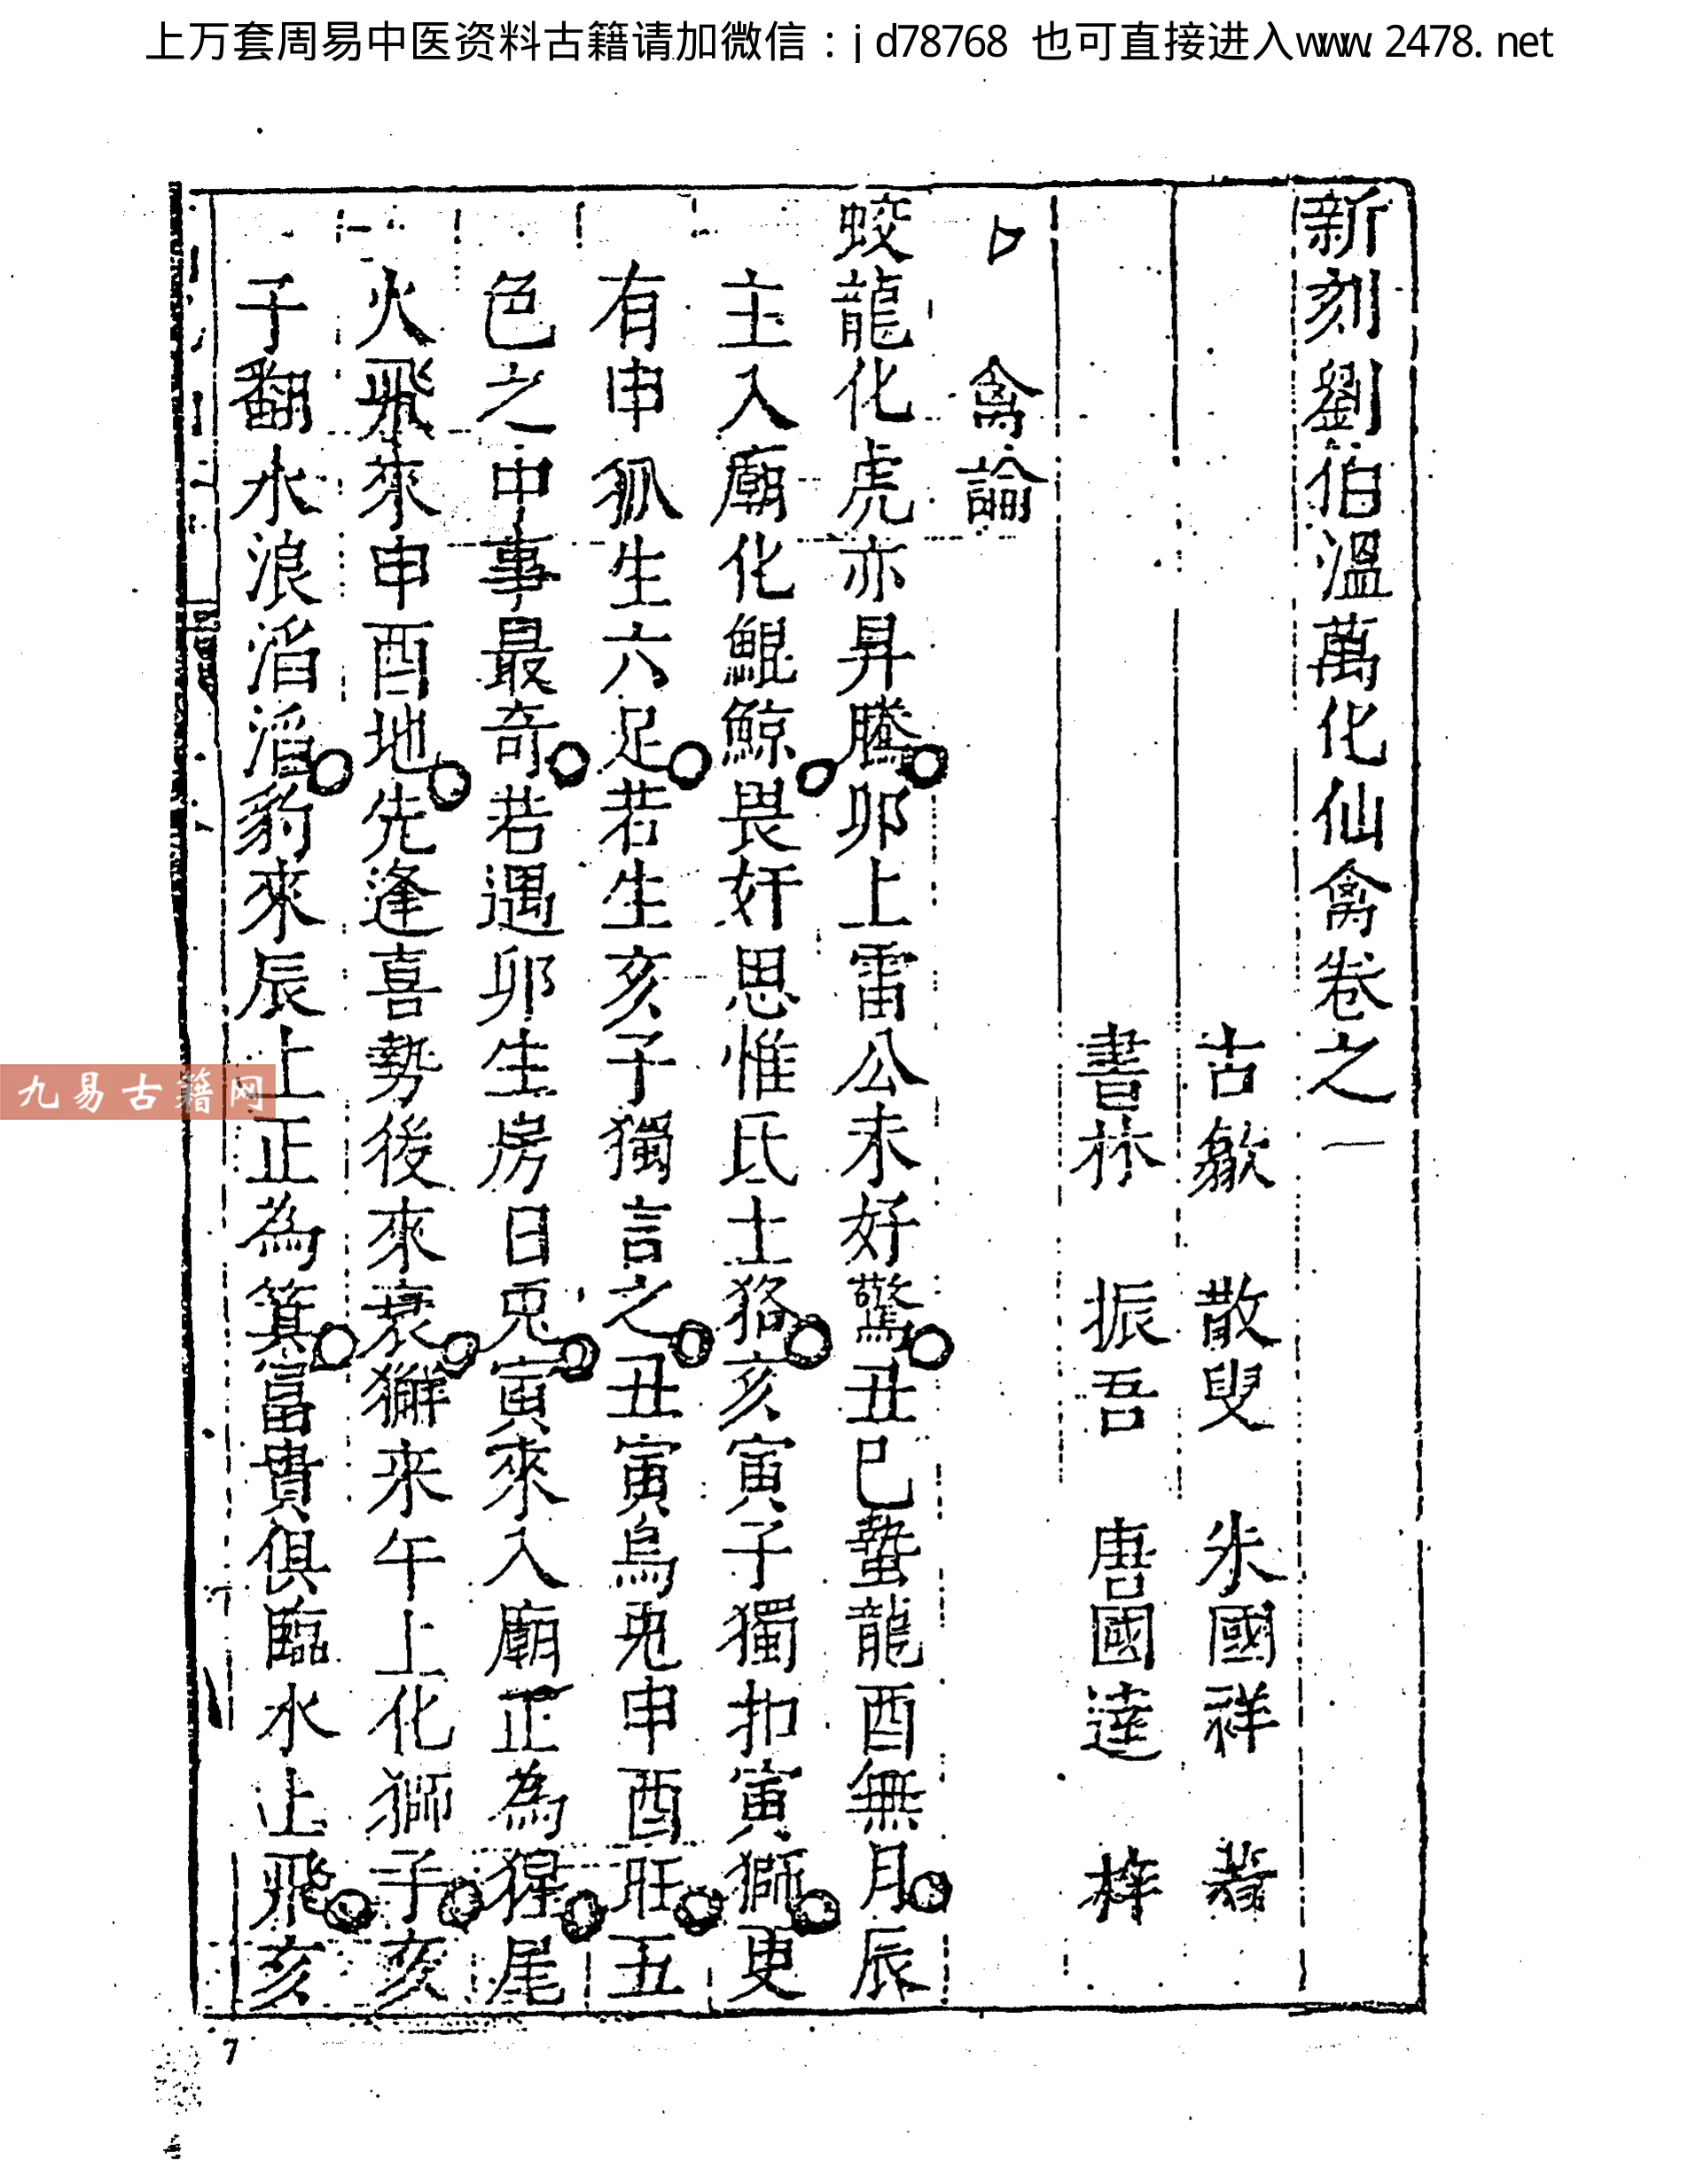 上万套周易中医资料古籍请加微信：jd78768 也可直接进入www.2478.net
新刻劉伯溫萬化仙禽卷之一
古歙 散叟 朱國祥 著
書林 振吾 唐國達 梓
禽論
蛟龍化虎亦昇騰卯上雷公未好驚丑巳蟄龍酉無月辰
主入廟化鯤鯨畏奸思惟氐土狢亥寅子獨扣寅獅更
有申狐生六足若生亥子獨言之丑寅烏兎申酉旺五
色之中事最奇若遇卯生房日兎寅來入廟正為猩尾
火飛來申酉地先逢喜勢後來衰獬来午上化獅子亥
子翻水浪滔滔豹來辰上正為箕富貴俱臨水上飛亥
九易古籍网
7